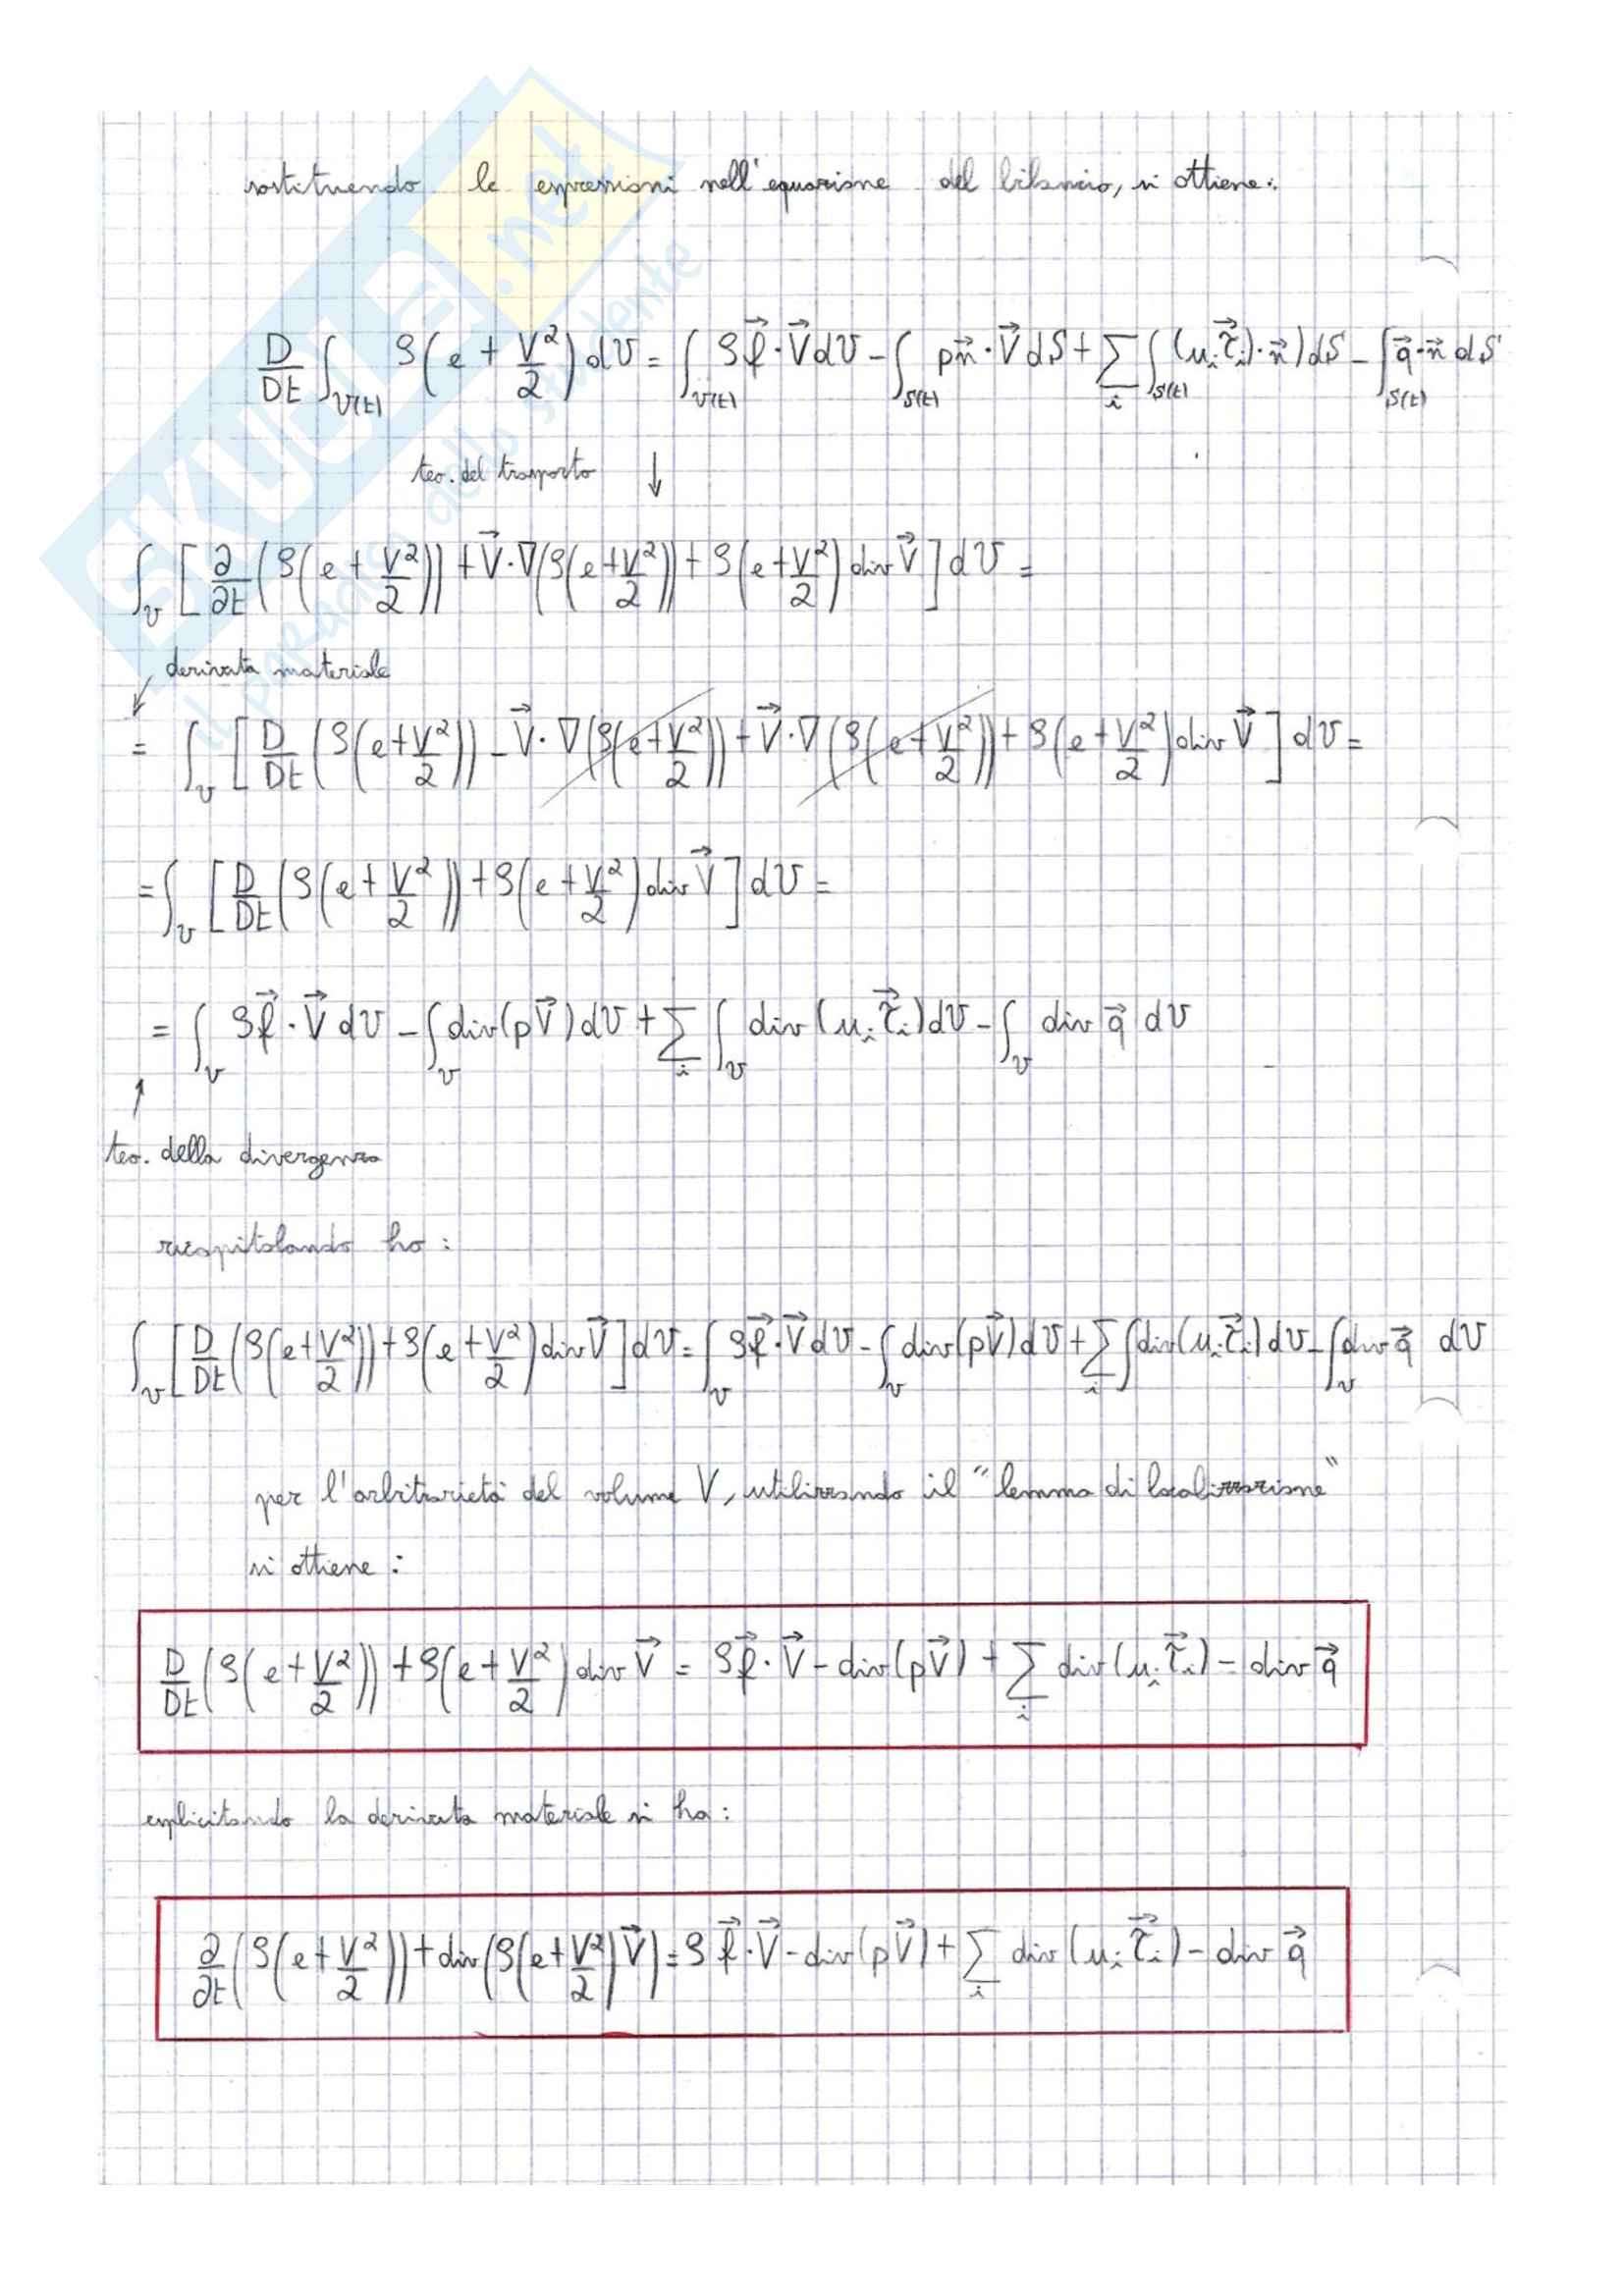 SKUOLA.net
il paradiso dello studente
sostituendo le espressioni nell'equazione del bilancio, si ottiene:
D/Dt ∫_V(t) ρ(e + V²/2) dV = ∫_V(t) ρf⃗·V⃗ dV − ∫_S(t) pn⃗·V⃗ dS + Σ_i ∫_S(t) (u_i τ⃗_i)·n⃗) dS − ∫_S(t) q⃗·n⃗ dS
teo. del trasporto ↓
∫_V [∂/∂t (ρ(e + V²/2)) + V⃗·∇(ρ(e + V²/2)) + ρ(e + V²/2) div V⃗] dV =
derivata materiale
= ∫_V [D/Dt (ρ(e + V²/2)) − V⃗·∇(ρ(e + V²/2)) + V⃗·∇(ρ(e + V²/2)) + ρ(e + V²/2) div V⃗] dV =
= ∫_V [D/Dt (ρ(e + V²/2)) + ρ(e + V²/2) div V⃗] dV =
= ∫_V ρf⃗·V⃗ dV − ∫_V div(pV⃗) dV + Σ_i ∫_V div(u_i τ⃗_i) dV − ∫_V div q⃗ dV
teo. della divergenza
ricapitolando ho:
∫_V [D/Dt (ρ(e + V²/2)) + ρ(e + V²/2) div V⃗] dV = ∫_V ρf⃗·V⃗ dV − ∫_V div(pV⃗) dV + Σ_i ∫ div(u_i τ⃗_i) dV − ∫_V div q⃗ dV
per l'arbitrarietà del volume V, utilizzando il "lemma di localizzazione"
si ottiene:
D/Dt (ρ(e + V²/2)) + ρ(e + V²/2) div V⃗ = ρf⃗·V⃗ − div(pV⃗) + Σ_i div(u_i τ⃗_i) − div q⃗
esplicitando la derivata materiale si ha:
∂/∂t (ρ(e + V²/2)) + div(ρ(e + V²/2) V⃗) = ρf⃗·V⃗ − div(pV⃗) + Σ_i div(u_i τ⃗_i) − div q⃗